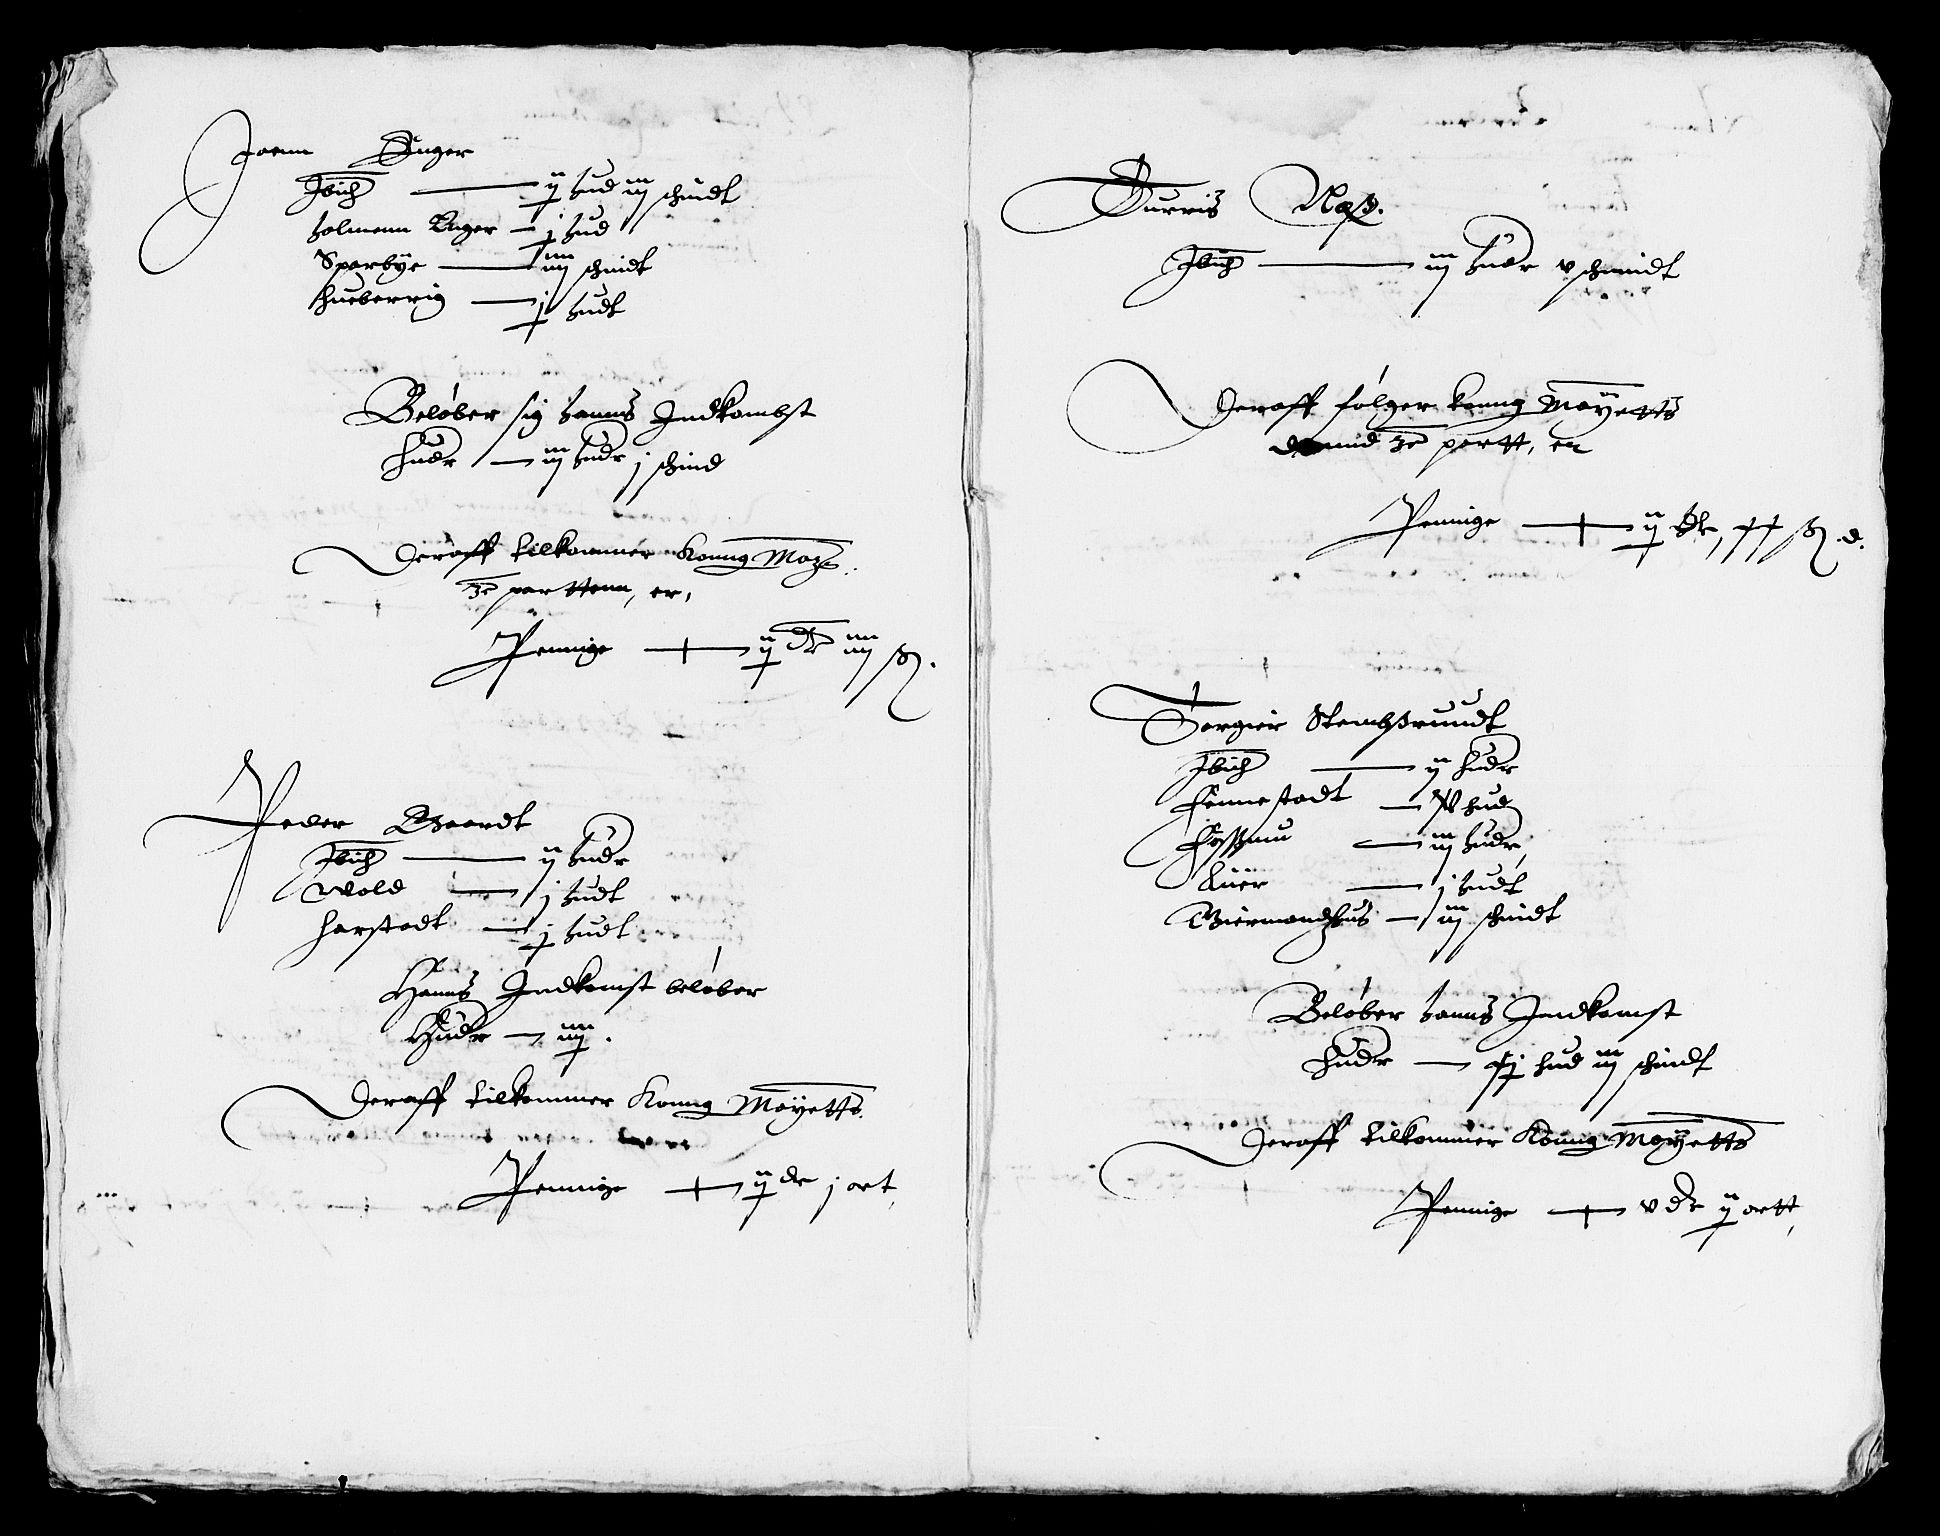 Joenn Enger
Ibid — ij hud iij schindt
holmenn Enger — j hud
Sparbye — iiij schindt
hueberrig — j hudt
Beløber sig hanns Indkombst
huder — iij hudr j schind
Deraff tilkommer Konng May:
3e parttenn, er,
Pennige — ij dr iiij ß.
Peder Gaardt
Ibid — ij hudr
Wold — j hudt
harstadt — j hudt
Hanns Indkomst beløber
Hudr — iiij.
Deraff tilkommer Konng Mayetts.
Pennige — ij dr j ort,
Gurris Næs.
Ibid — iij huder v schindt
Deraff følger konng Mayetts
3e partt, er
Pennige — ij dr, ß. d.
Torgier Stembsrundt
Ibid — ij hudr
Finnestadt — hud
Fosshmu — iij hudr,
Lier — j hudt
Biermandhus — iij schindt
Beløber hanns Indkomst
hudr — hud iij schindt
Deraff tilkommer Konng Mayetts
Pennige — v dr ij ortt,